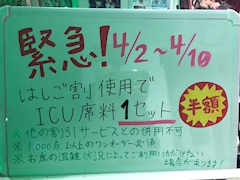 緊急! 4/2〜4/10
はしご割使用で
ICU席料1セット
半額
※他の割引サービスとの併用不可
※1,000点以上のワンオーダー必須
※お席の混雑状況によってご利用いただけない
場合があります!